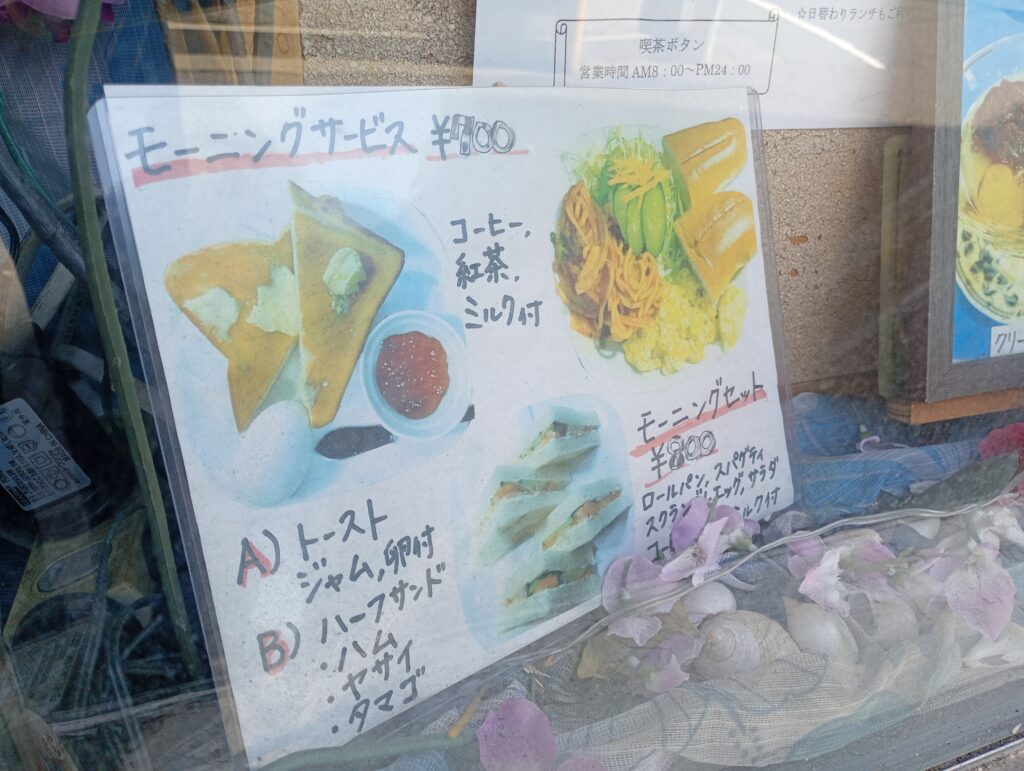 ☆日替わりランチもご利
喫茶ボタン
営業時間 AM8:00〜PM24:00
モーニングサービス ¥700
コーヒー,
紅茶,
ミルク付
A) トースト
ジャム,卵付
B) ハーフサンド
・ハム
・ヤサイ
・タマゴ
モーニングセット
¥800
ロールパン, スパゲティ
エッグ, サラダ
ミルク付
クリー
MADE IN CHINA